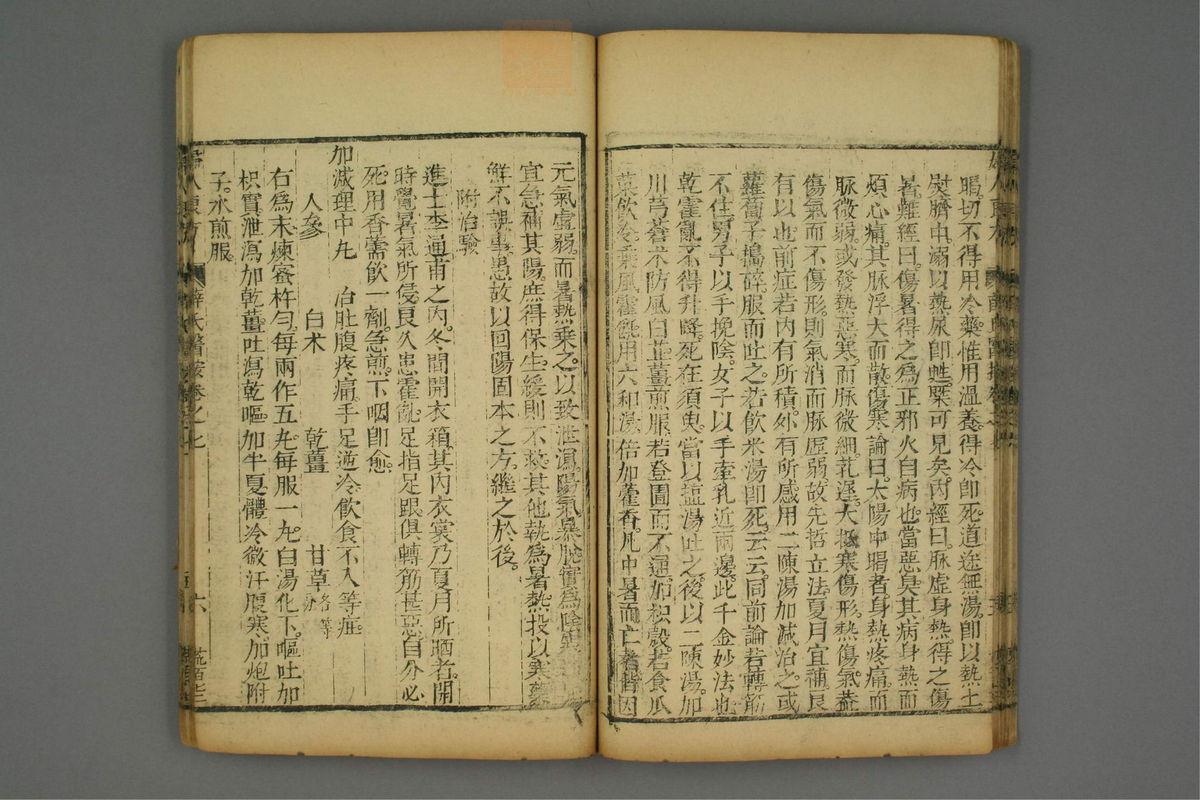 暍。切不得用冷藥。惟用溫養。得冷卽死。道途無湯。卽以熱土
熨臍中。溺以熱尿卽甦。槩可見矣。內經曰。脉虛身熱。得之傷
暑。難經曰。傷暑得之爲正邪。火自病也。當惡臭。其病身熱而
煩心痛。其脉浮大而散。傷寒論曰。太陽中暍者。身熱疼痛而
脉微弱。或發熱惡寒。而脉微細芤遲。大抵寒傷形。熱傷氣。蓋
傷氣而不傷形。則氣消而脉虛弱。故先哲立法。夏月宜補。良
有以也。前症若內有所積。外有所感。用二陳湯加減治之。或
蘿蔔子搗碎服而吐之。若飲米湯卽死。云云。同前論。若轉筋
不住。男子以手挽陰。女子以手牽乳近兩邊。此千金妙法也。
乾霍亂不得升降。死在須臾。當以鹽湯吐之。後以二陳湯。加
川芎蒼朮防風白芷薑煎服。若登圊而不通。加枳殼。若食瓜
菓飲冷。乘風霍亂。用六和湯。倍加藿香。凡中暑而亡者。皆因
元氣虛弱。而暑熱乘之。以致泄瀉。陽氣暴脫。實爲陰寒
宜急補其陽。庶得保生。緩則不救。其他執爲暑熱。投以寒藥
鮮不誤事。愚故以回陽固本之方。繼之於後。
附治驗
進士李通甫之內。冬間開衣箱。其內衣裳乃夏月所晒者。開
時覺暑氣所侵。良久患霍亂。足指足跟。俱轉筋甚惡。自分必
死。用香薷飲一劑。急煎。下咽卽愈。
加減理中丸 治肚腹疼痛。手足逆冷。飲食不入等症
人參 白朮 乾薑 甘草各等分
右爲末。煉蜜杵勻。每兩作五丸。每服一丸。白湯化下。嘔吐加
枳實。泄瀉加乾薑。吐瀉乾嘔加半夏。體冷微汗腹寒。加炮附
子。水煎服
婦人良方 薛氏醫按卷之七 六